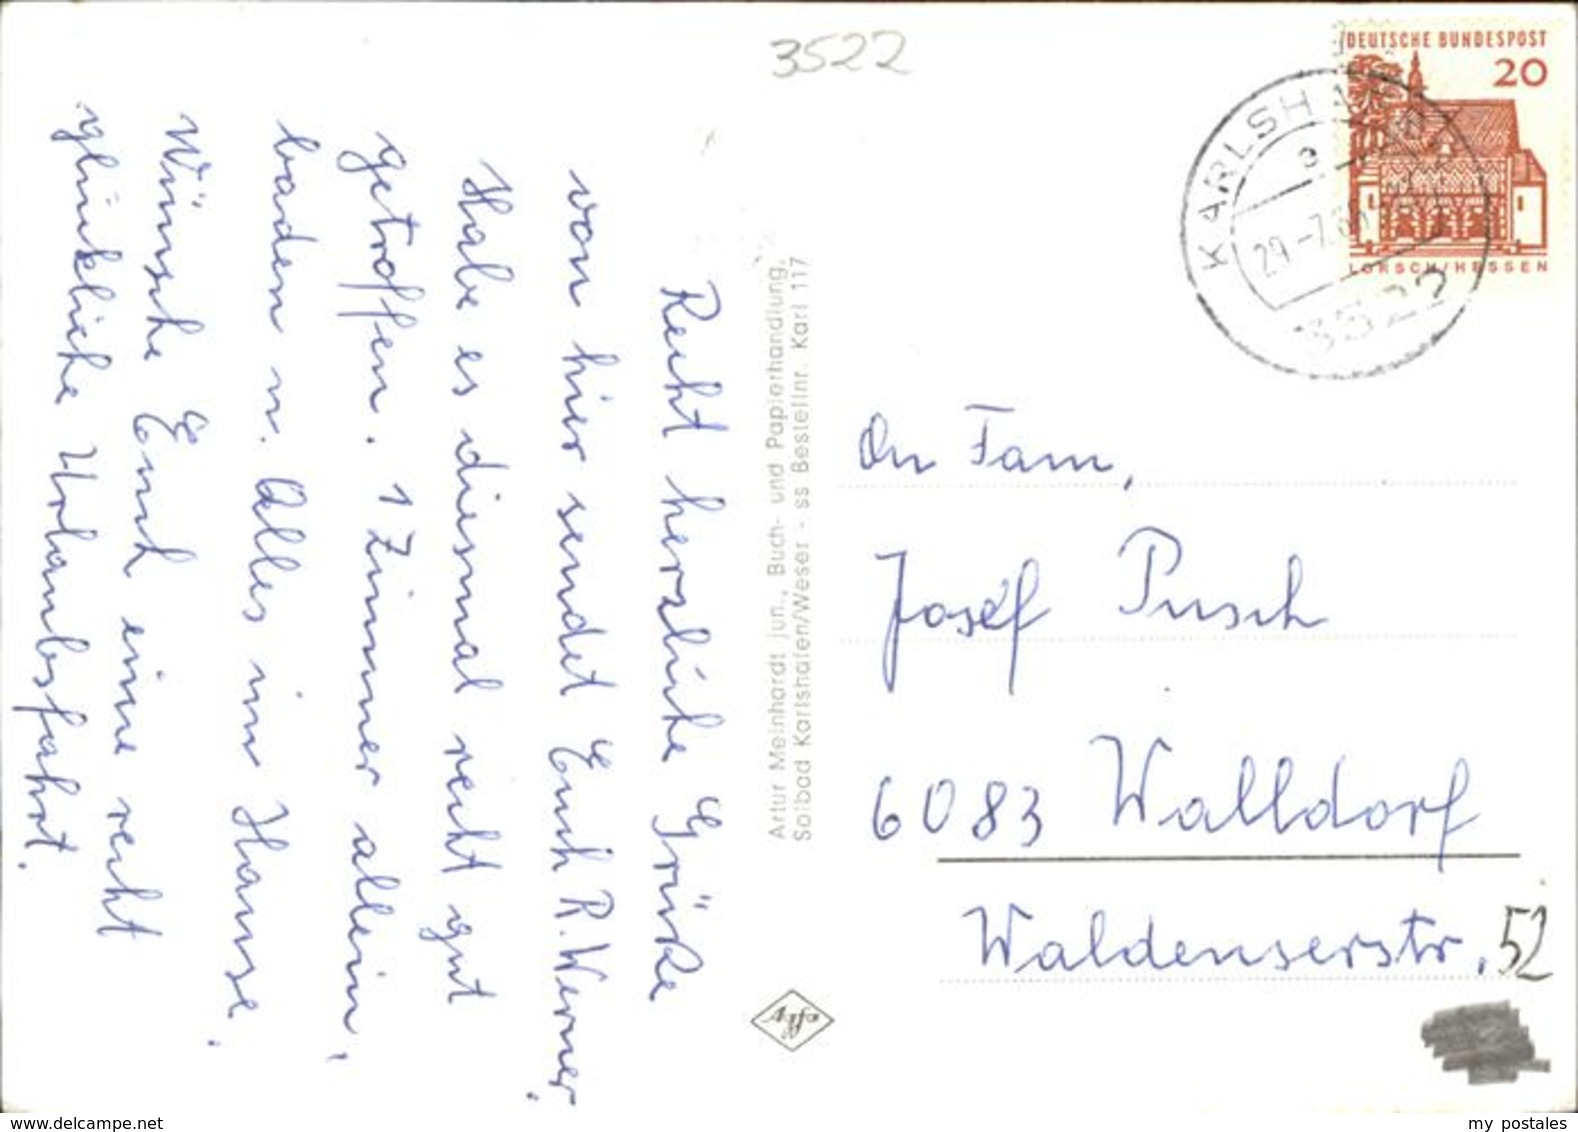 3522
DEUTSCHE BUNDESPOST
20
LORSCH/HESSEN
KARLSHAFEN
a
29.-7.
3522
Recht herzliche Grüße
von hier sendet Euch R. Werner,
Habe es diesmal recht gut
getroffen. 1 Zimmer allein,
baden u. Alles im Hause.
Wünsche Euch eine recht
glückliche Urlaubsfahrt.
Artur Meinhardt jun., Buch- und Papierhandlung,
Solbad Karlshafen/Weser - ss Bestellnr. Karl 117
An Fam,
Josef Pusch
6083 Walldorf
Waldenserstr, 52
www.delcampe.net
my postales